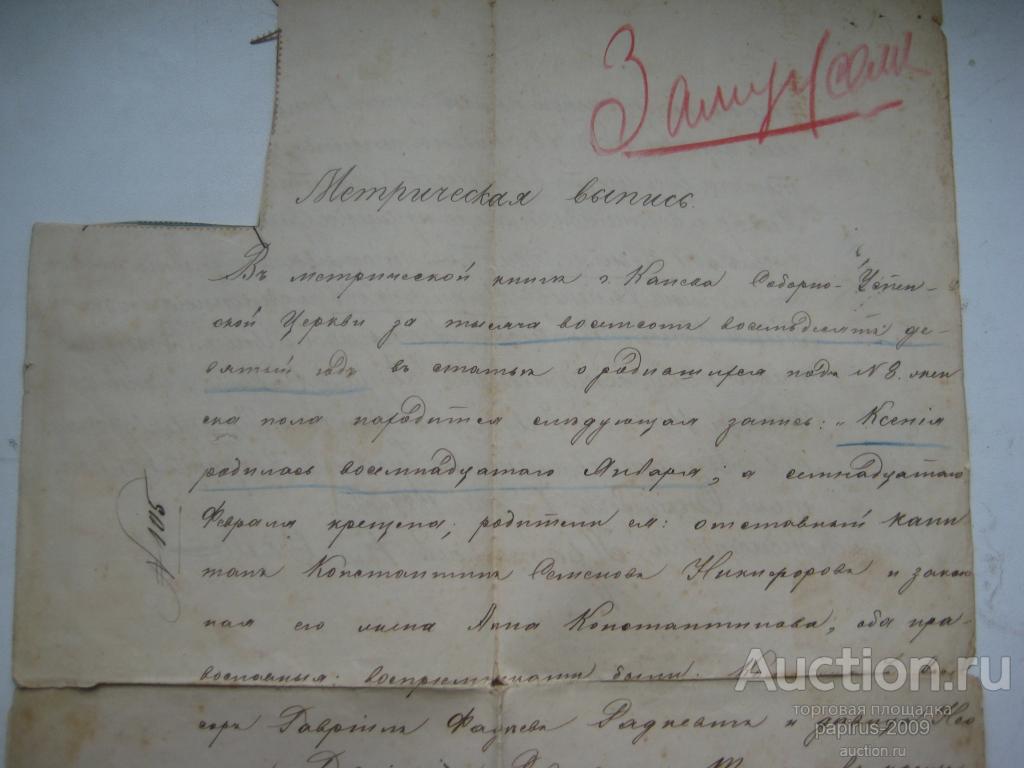 Замужем
Метрическая выпись.
Въ метрической книге г. Канева Соборно-Успен-
ской Церкви за тысяча восемьсотъ восемьдесятъ де-
вятый годъ въ статье о родившихся подъ № 8. жен-
ска пола находится следующая запись: „Ксенія
родилась восемнадцатаго Января; а семнадцатаго
Февраля крещена; родители ея: отставный капи
танъ Константинъ Семеновъ Никифоровъ и закон
ная его жена Анна Константинова, оба пра-
вославные: воспріемниками были:
Гавріилъ Фадеевъ Радкевичъ и
№ 105
Auction.ru
торговая площадка
papirus-2009
auction.ru